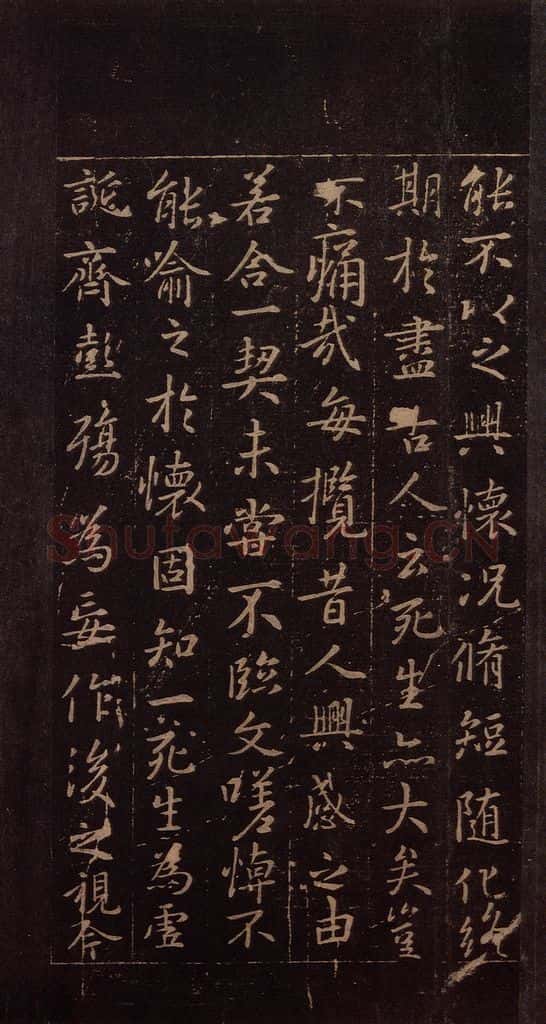 能不以之興懷况脩短随化終
期於盡古人云死生亦大矣豈
不痛哉每攬昔人興感之由
若合一契未嘗不臨文嗟悼不
能喻之於懷固知一死生為虛
誕齊彭殤為妄作後之視今
Shufawang.CN